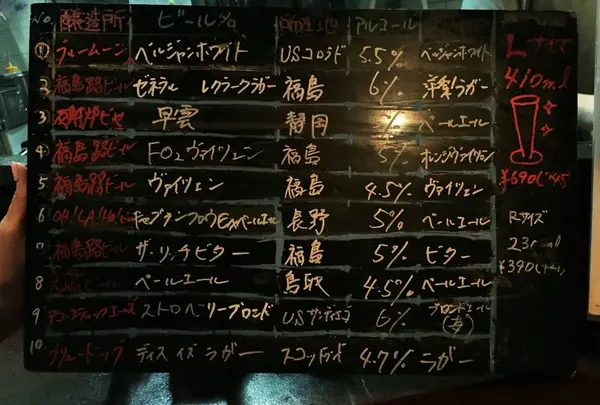 No. 醸造所 ビール名 所在地 アルコール
① ブルームーン ベルジャンホワイト USコロラド 5.5% ベルジャンホワイト
2 福島路ビール ゼネラル レクラークラガー 福島 6% 洋梨ラガー
3 反射炉ビヤ 早雲 静岡 % ペールエール
4 福島路ビール FO2ヴァイツェン 福島 5% オレンジヴァイツェン
5 福島路ビール ヴァイツェン 福島 4.5% ヴァイツェン
6 キャプテンクロウEXペールエール 長野 5% ペールエール
7 福島路ビール ザ・リッチビター 福島 5% ビター
8 大山Gビール ペールエール 鳥取 4.5% ペールエール
9 アコースティックエールズ ストロベリーブロンド USサンディエゴ 6% ブロンドエール
10 ブリュードッグ ディス イズ ラガー スコットランド 4.7% ラガー
Lサイズ
410ml
¥690
Rサイズ
¥390